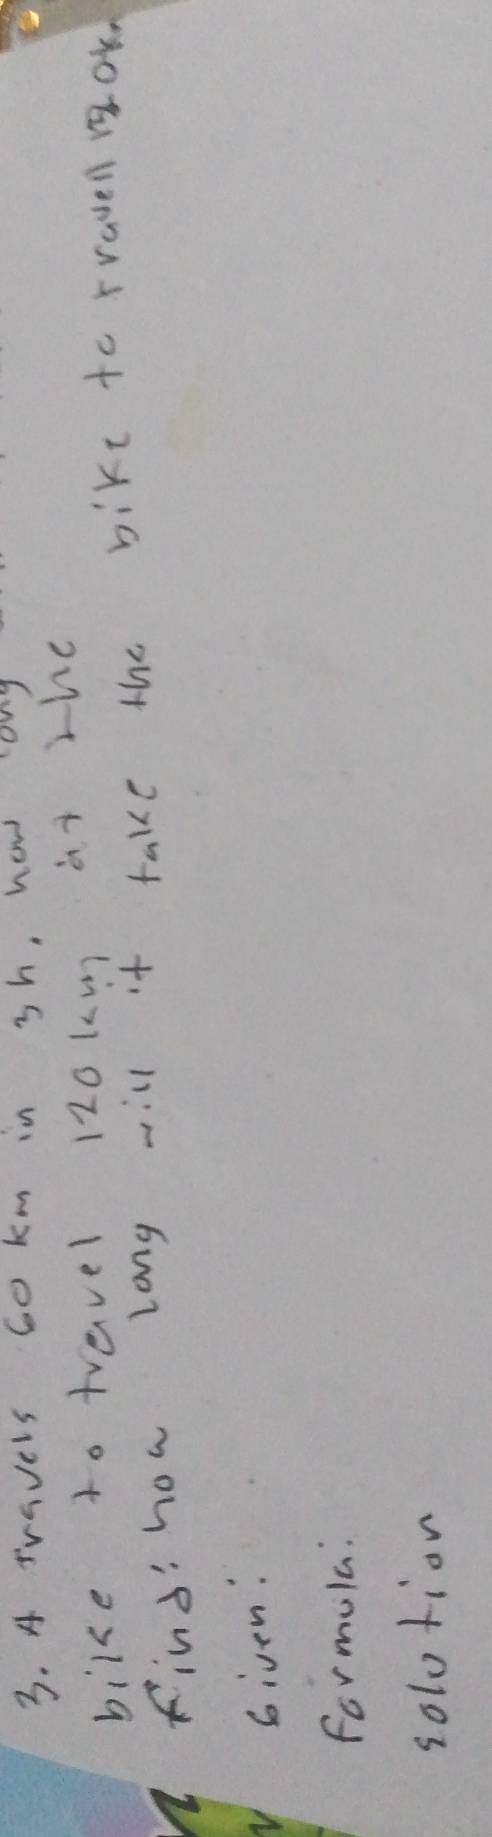 3. A travels 60 km in 3h. how long
bike to travel 120 km at the
find: how long will it take the bike to travell
Given:
formula:
solution